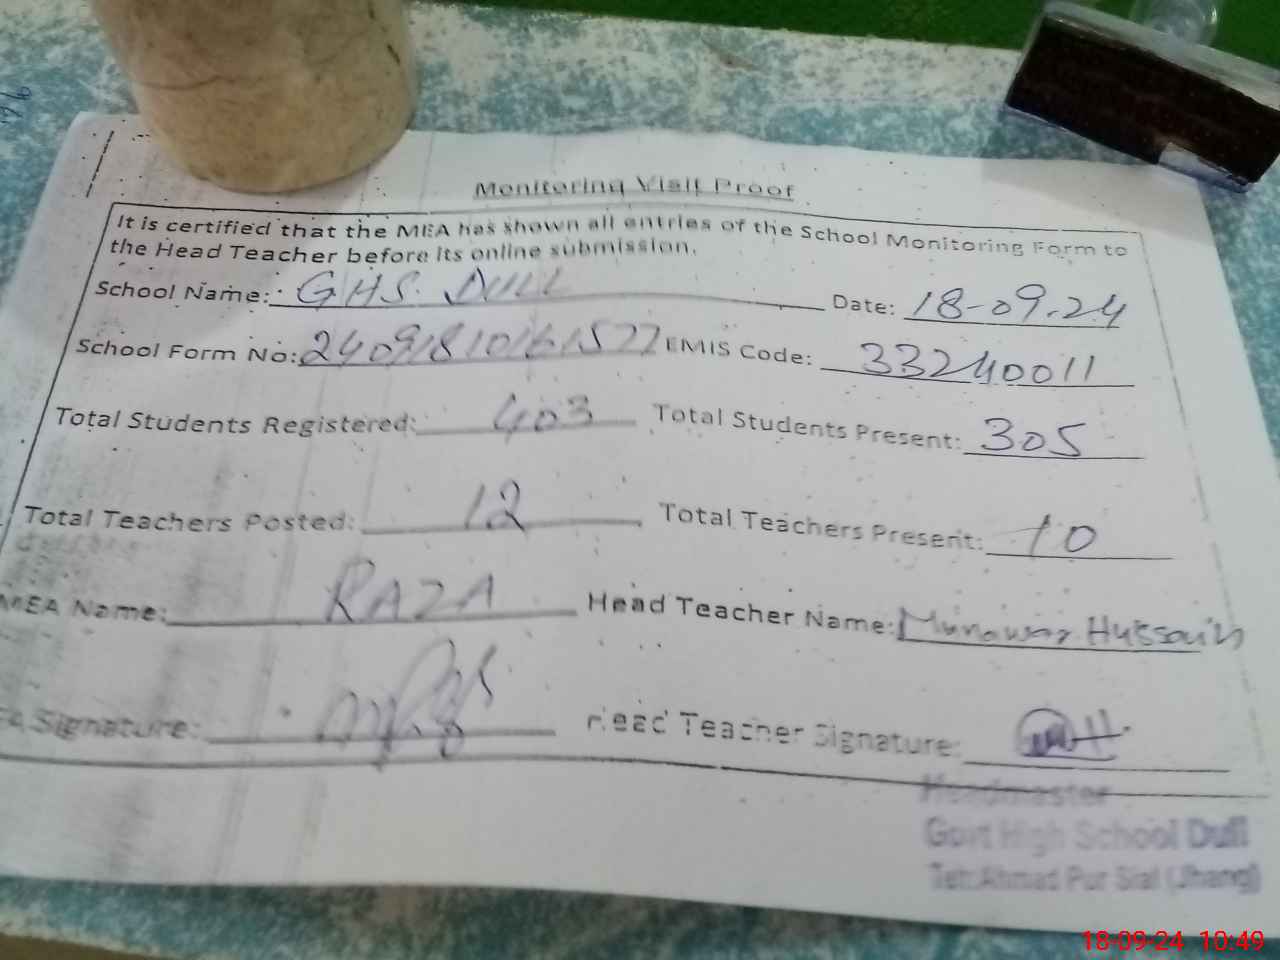 Monitoring Visit Proof
It is certified that the MEA has shown all entries of the School Monitoring Form to
the Head Teacher before its online submission.
School Name: GHS. DULL Date: 18-09-24
School Form No: EMIS Code: 33240011
Total Students Registered: 403 Total Students Present: 305
Total Teachers Posted: 12 Total Teachers Present: 10
MEA Name: RAZA Head Teacher Name: Munawar Hussain
EA Signature: Head Teacher Signature:
Headmaster
Govt High School Dull
Teh: Ahmad Pur Sial (Jhang)
18-09-24 10:49